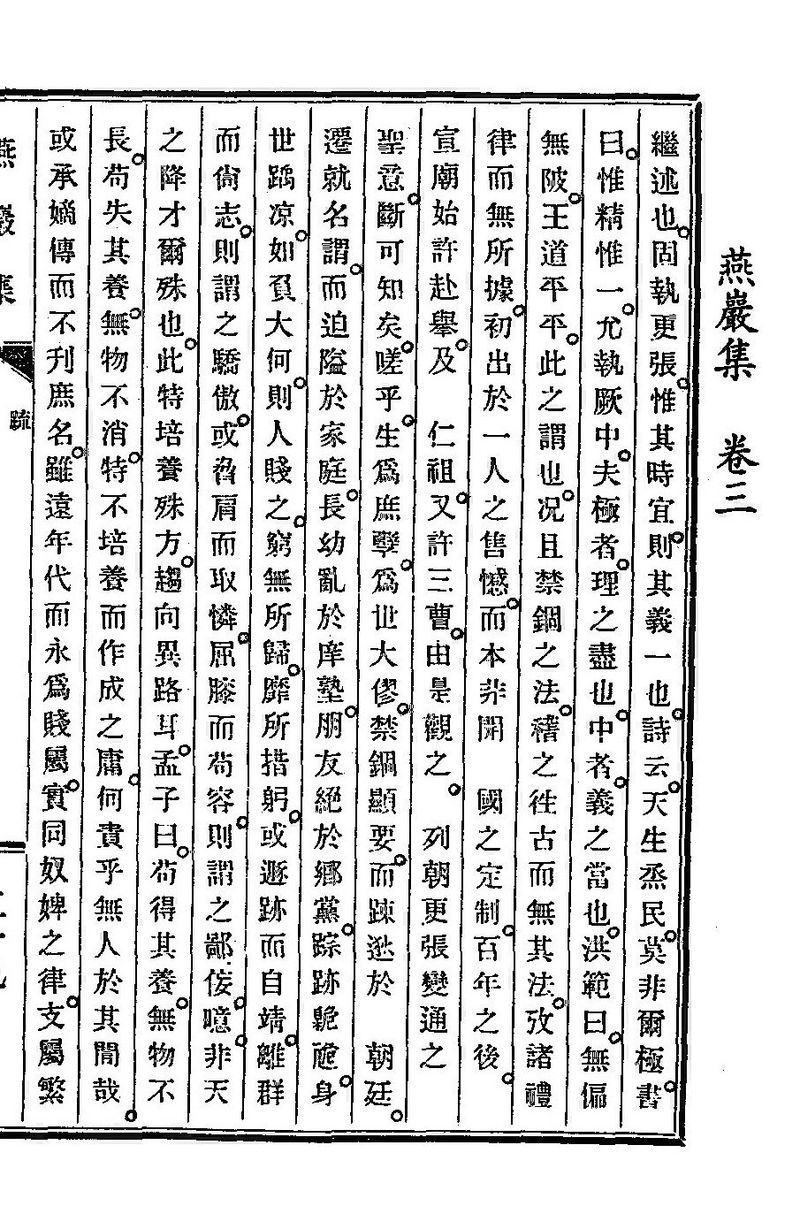 燕巖集　卷三
繼述也。固執更張。惟其時宜。則其義一也。詩云。天生烝民。莫非爾極。書
曰。惟精惟一。允執厥中。夫極者。理之盡也。中者。義之當也。洪範曰。無偏
無陂。王道平平。此之謂也。况且禁錮之法。稽之徃古而無其法。攷諸禮
律而無所據。初出於一人之售憾。而本非開　國之定制。百年之後。
宣廟始許赴舉。及　仁祖。又許三曹。由是觀之。　列朝更張變通之
聖意。斷可知矣。嗟乎。生爲庶孼。爲世大僇。禁錮顯要。而踈迯於　朝廷。
遷就名謂。而迫隘於家庭。長幼亂於庠塾。朋友絕於鄉黨。踪跡臲卼。身
世踽凉。如負大何。則人賤之。窮無所歸。靡所措躬。或遯跡而自靖。離群
而尙志。則謂之驕傲。或脅肩而取憐。屈膝而苟容。則謂之鄙侫。噫。非天
之降才爾殊也。此特培養殊方。趨向異路耳。孟子曰。苟得其養。無物不
長。苟失其養。無物不消。特不培養而作成之庸。何責乎無人於其間哉。
或承嫡傳而不刋庶名。雖遠年代而永爲賤屬。實同奴婢之律。支屬繁
燕巖集
疏